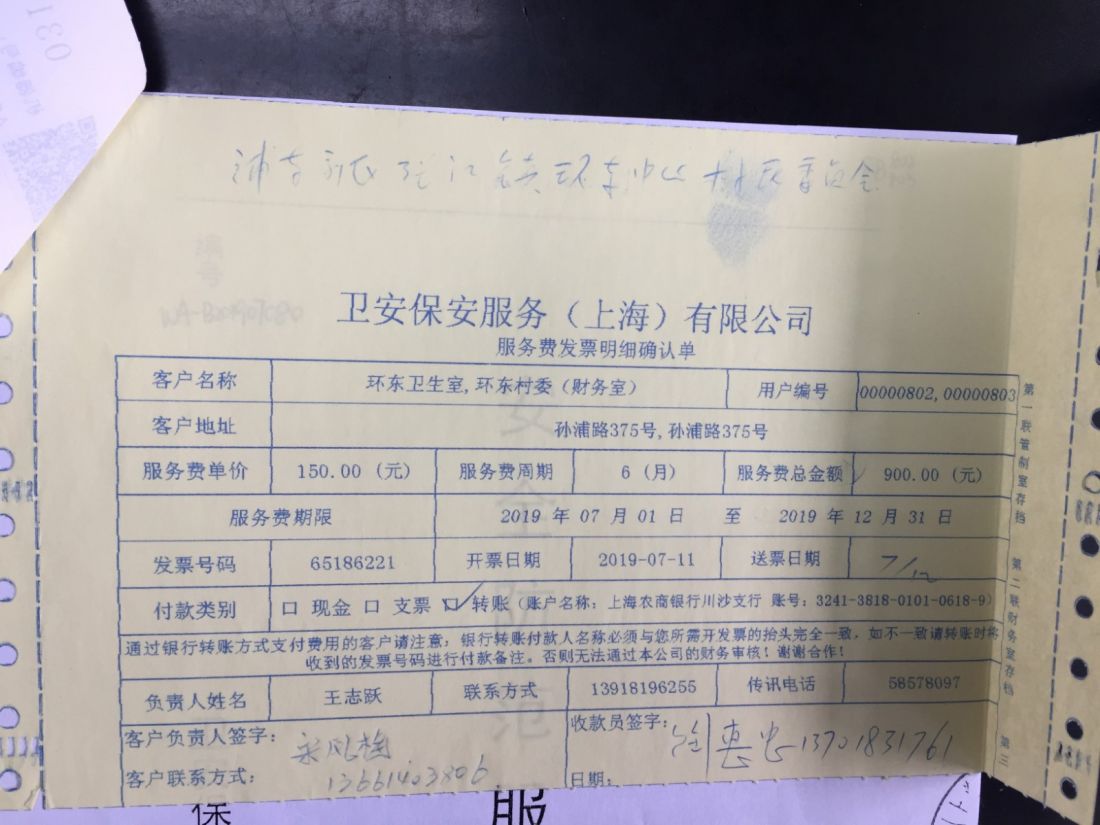 浦东新区张江镇环东中心村村民委员会
卫安保安服务（上海）有限公司
服务费发票明细确认单
客户名称 环东卫生室,环东村委（财务室） 用户编号 00000802,00000803
客户地址 孙浦路375号,孙浦路375号
服务费单价 150.00 (元) 服务费周期 6 (月) 服务费总金额 900.00 (元)
服务费期限 2019 年 07 月 01 日 至 2019 年 12 月 31 日
发票号码 65186221 开票日期 2019-07-11 送票日期 7/12
付款类别 口 现金 口 支票 口 转账（账户名称：上海农商银行川沙支行 账号：3241-3818-0101-0618-9）
通过银行转账方式支付费用的客户请注意；银行转账付款人名称必须与您所需开发票的抬头完全一致，如不一致请转账时将
收到的发票号码进行付款备注。否则无法通过本公司的财务审核！谢谢合作！
负责人姓名 王志跃 联系方式 13918196255 传讯电话 58578097
客户负责人签字：
收款员签字： 13701831761
客户联系方式： 13661403806
日期：
第一联管制室存档
第二联财务室存档
第三
保
服